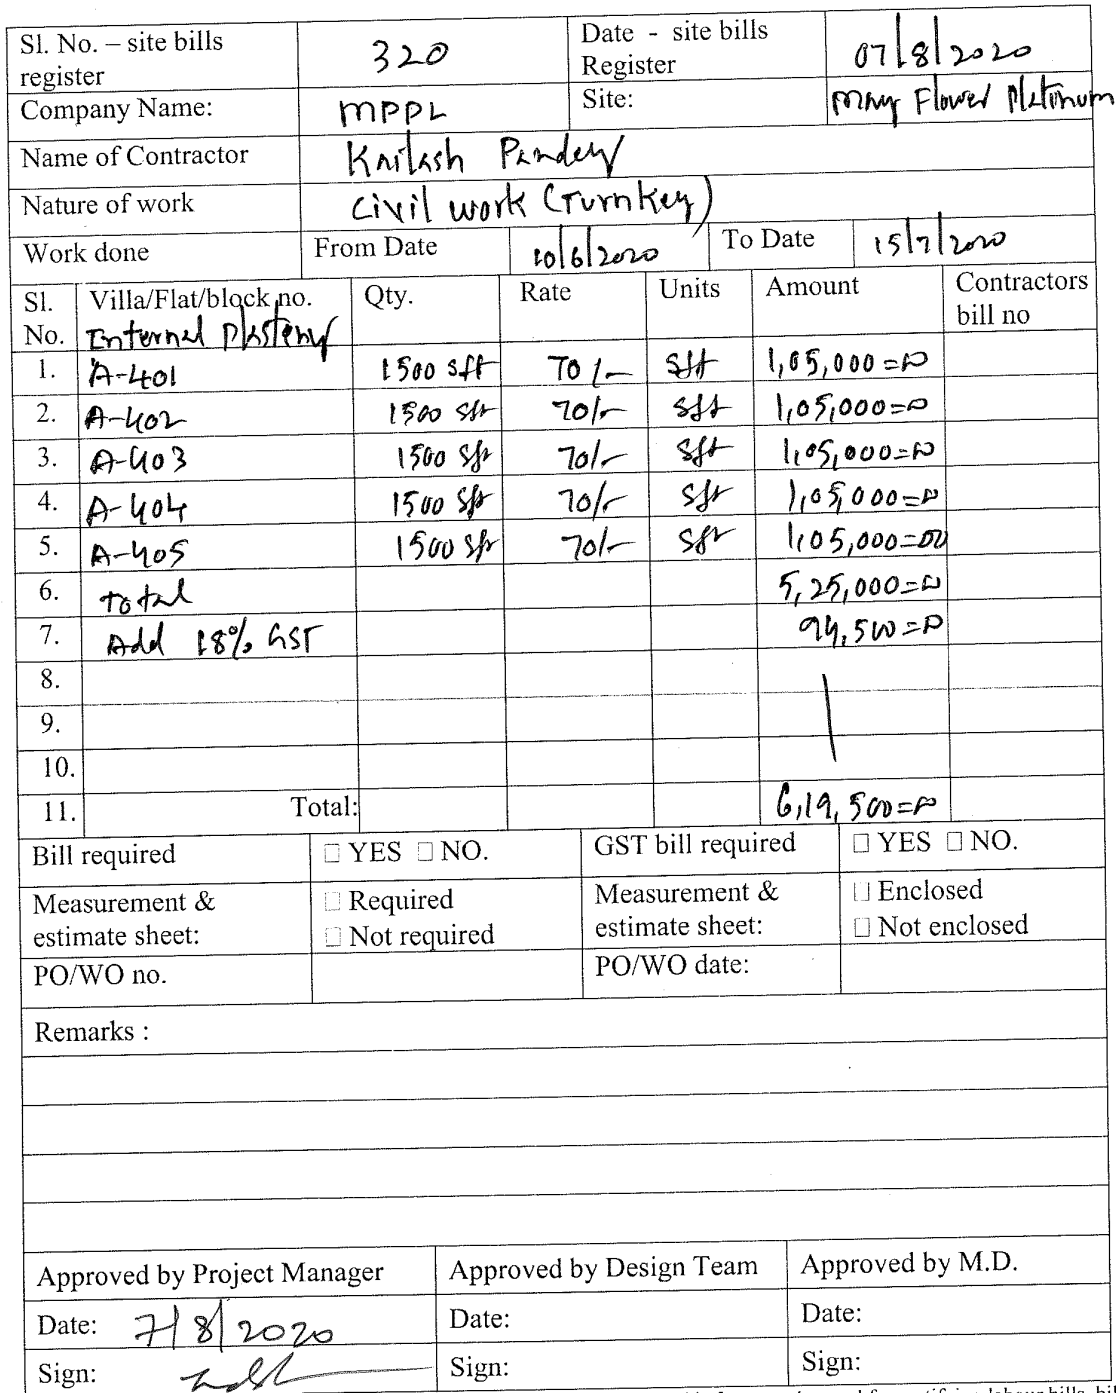 Sl. No. – site bills register 320 Date - site bills Register 07/8/2020
Company Name: MPPL Site: May Flower Platinum
Name of Contractor Kailash Pandey
Nature of work Civil work (Turnkey)
Work done From Date 10/6/2020 To Date 15/7/2020
Sl. No. Villa/Flat/block no. Qty. Rate Units Amount Contractors bill no
Internal Plastery
1. A-401 1500 sft 70/- sft 1,05,000=00
2. A-402 1500 sft 70/- sft 1,05,000=00
3. A-403 1500 sft 70/- sft 1,05,000=00
4. A-404 1500 sft 70/- sft 1,05,000=00
5. A-405 1500 sft 70/- sft 1,05,000=00
6. total 5,25,000=00
7. Add 18% GST 94,500=00
8.
9.
10.
11. Total: 6,19,500=00
Bill required □ YES □ NO. GST bill required □ YES □ NO.
Measurement & estimate sheet: □ Required □ Not required Measurement & estimate sheet: □ Enclosed □ Not enclosed
PO/WO no. PO/WO date:
Remarks :
Approved by Project Manager Approved by Design Team Approved by M.D.
Date: 7/8/2020 Date: Date:
Sign: Sign: Sign: